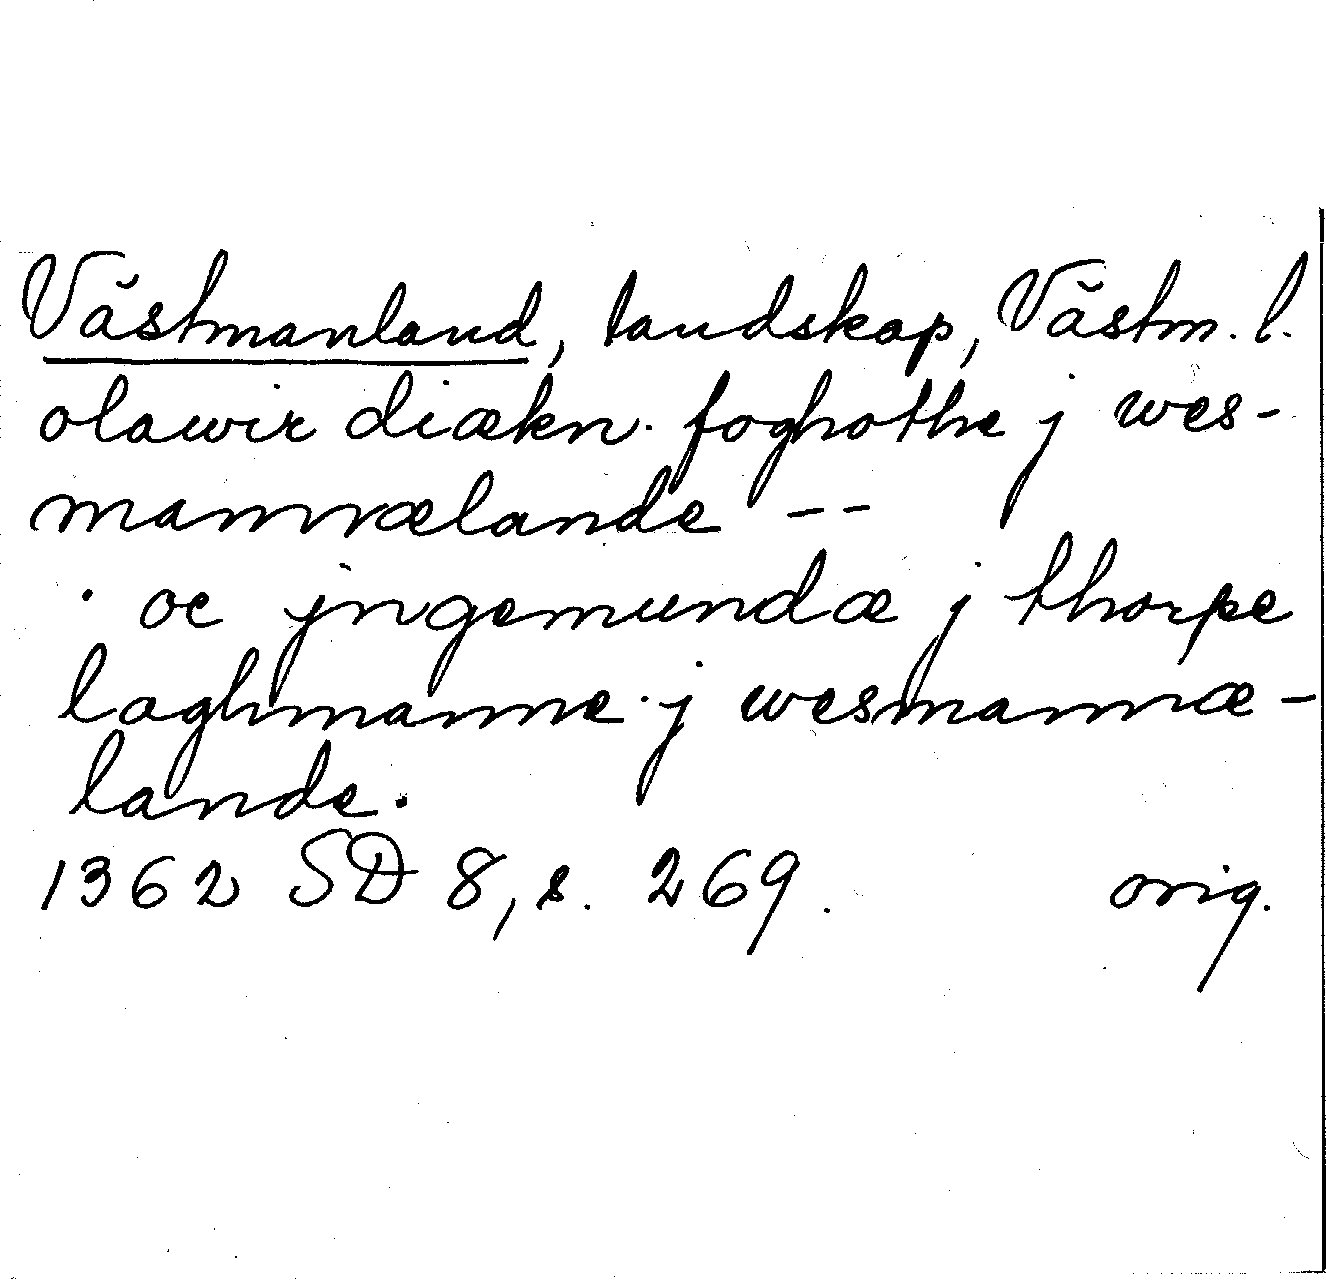 Västmanland, landskap, Västm. l.
olawir diækn. foghothe j wes-
mannælande --
· oc jngemundæ j thorpe
laghmanne. j wesmannæ-
lande.
1362 SD 8, s. 269. orig.